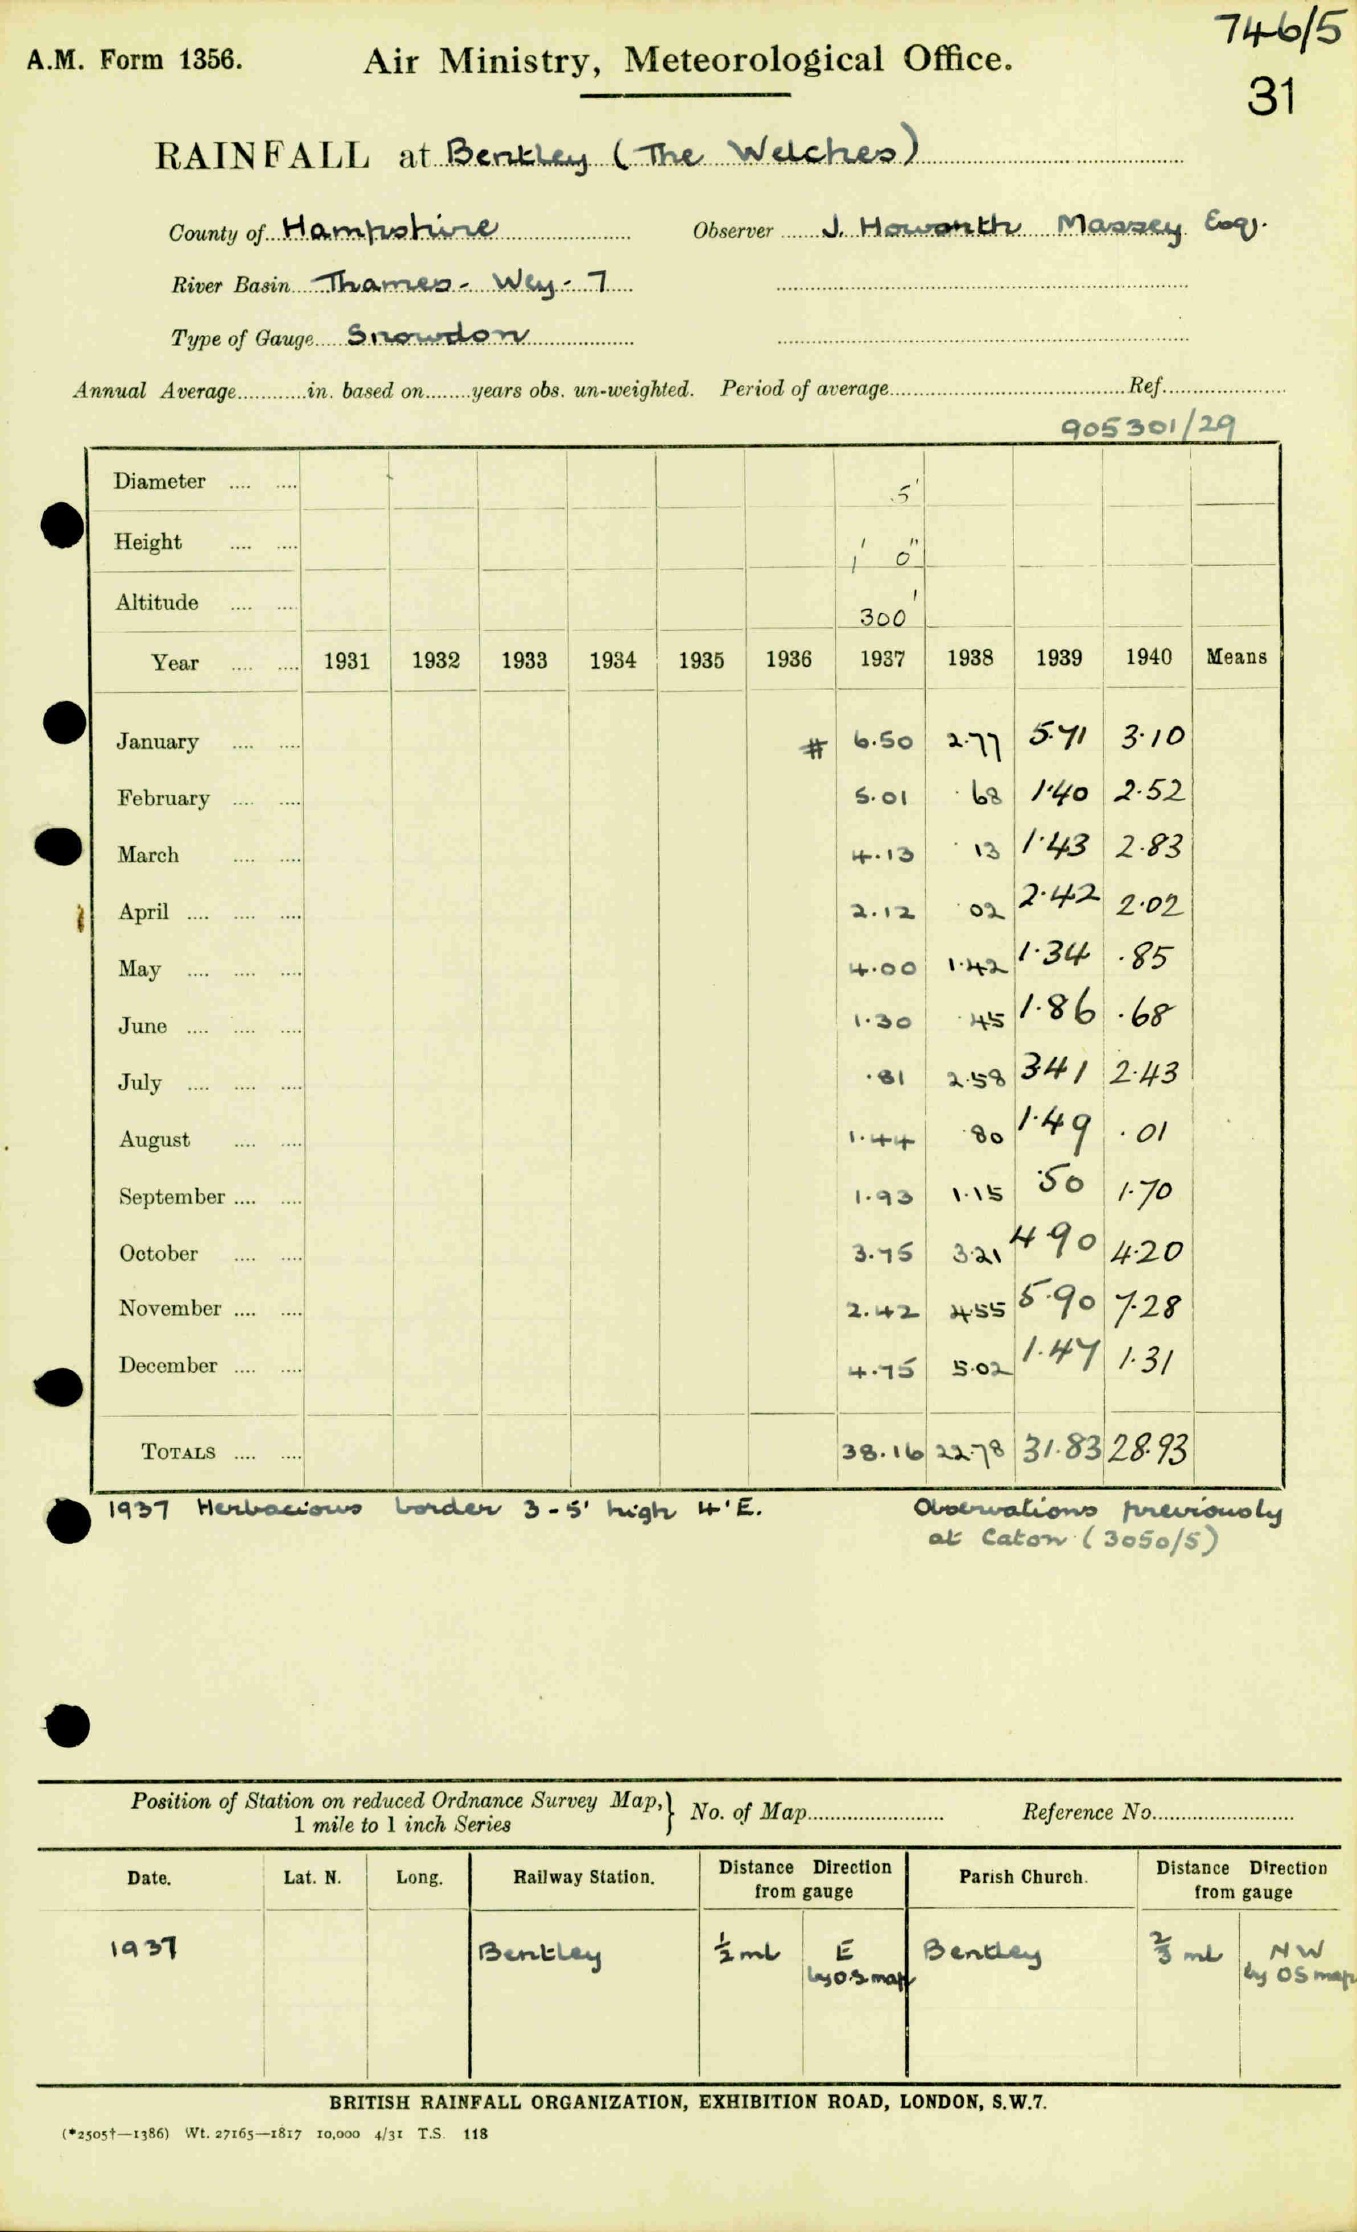 746/5
A.M. Form 1356. Air Ministry, Meteorological Office.
31
RAINFALL at Bentley (The Welches)
County of Hampshire Observer J. Howorth Massey Esq.
River Basin Thames - Wey - 7
Type of Gauge Snowdon
Annual Average............in. based on........years obs. un-weighted. Period of average.......... Ref..........
905301/29
Diameter .... .... 5"
Height .... .... 1' 0"
Altitude .... .... 300'
Year .... .... 1931 1932 1933 1934 1935 1936 1937 1938 1939 1940 Means
January .... .... # 6.50 2.77 5.71 3.10
February .... .... 5.01 .68 1.40 2.52
March .... .... 4.13 .13 1.43 2.83
April .... .... .... 2.12 .02 2.42 2.02
May .... .... .... 4.00 1.42 1.34 .85
June .... .... .... 1.30 .45 1.86 .68
July .... .... .... .81 2.58 3.41 2.43
August .... .... 1.44 .80 1.49 .01
September .... .... 1.93 1.15 .50 1.70
October .... .... 3.75 3.21 4.90 4.20
November .... .... 2.42 4.55 5.90 7.28
December .... .... 4.75 5.02 1.47 1.31
TOTALS .... .... 38.16 22.78 31.83 28.93
1937 Herbacious border 3-5' high 4'E. Observations previously
at Caton (3050/5)
Position of Station on reduced Ordnance Survey Map, } No. of Map.......... Reference No..........
1 mile to 1 inch Series
Date. Lat. N. Long. Railway Station. Distance Direction from gauge Parish Church. Distance Direction from gauge
1937 Bentley ½ ml E Bentley ⅔ ml NW
by O.S map by OS map
BRITISH RAINFALL ORGANIZATION, EXHIBITION ROAD, LONDON, S.W.7.
(*2505†—1386) Wt. 27165—1817 10,000 4/31 T.S. 118